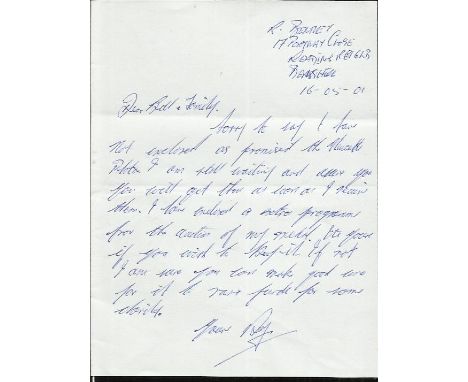 R. Bentley
17
Close
16-05-01
Dear Bill & Family.
Sorry to say I have
not enclosed as promised the
I am still waiting and assure you
you will get them as soon as I receive
them. I have enclosed a programme
from the auction of my medals its yours
if you wish to keep it. If not
I am sure you can make good use
for it to raise funds for some
charity.
Yours